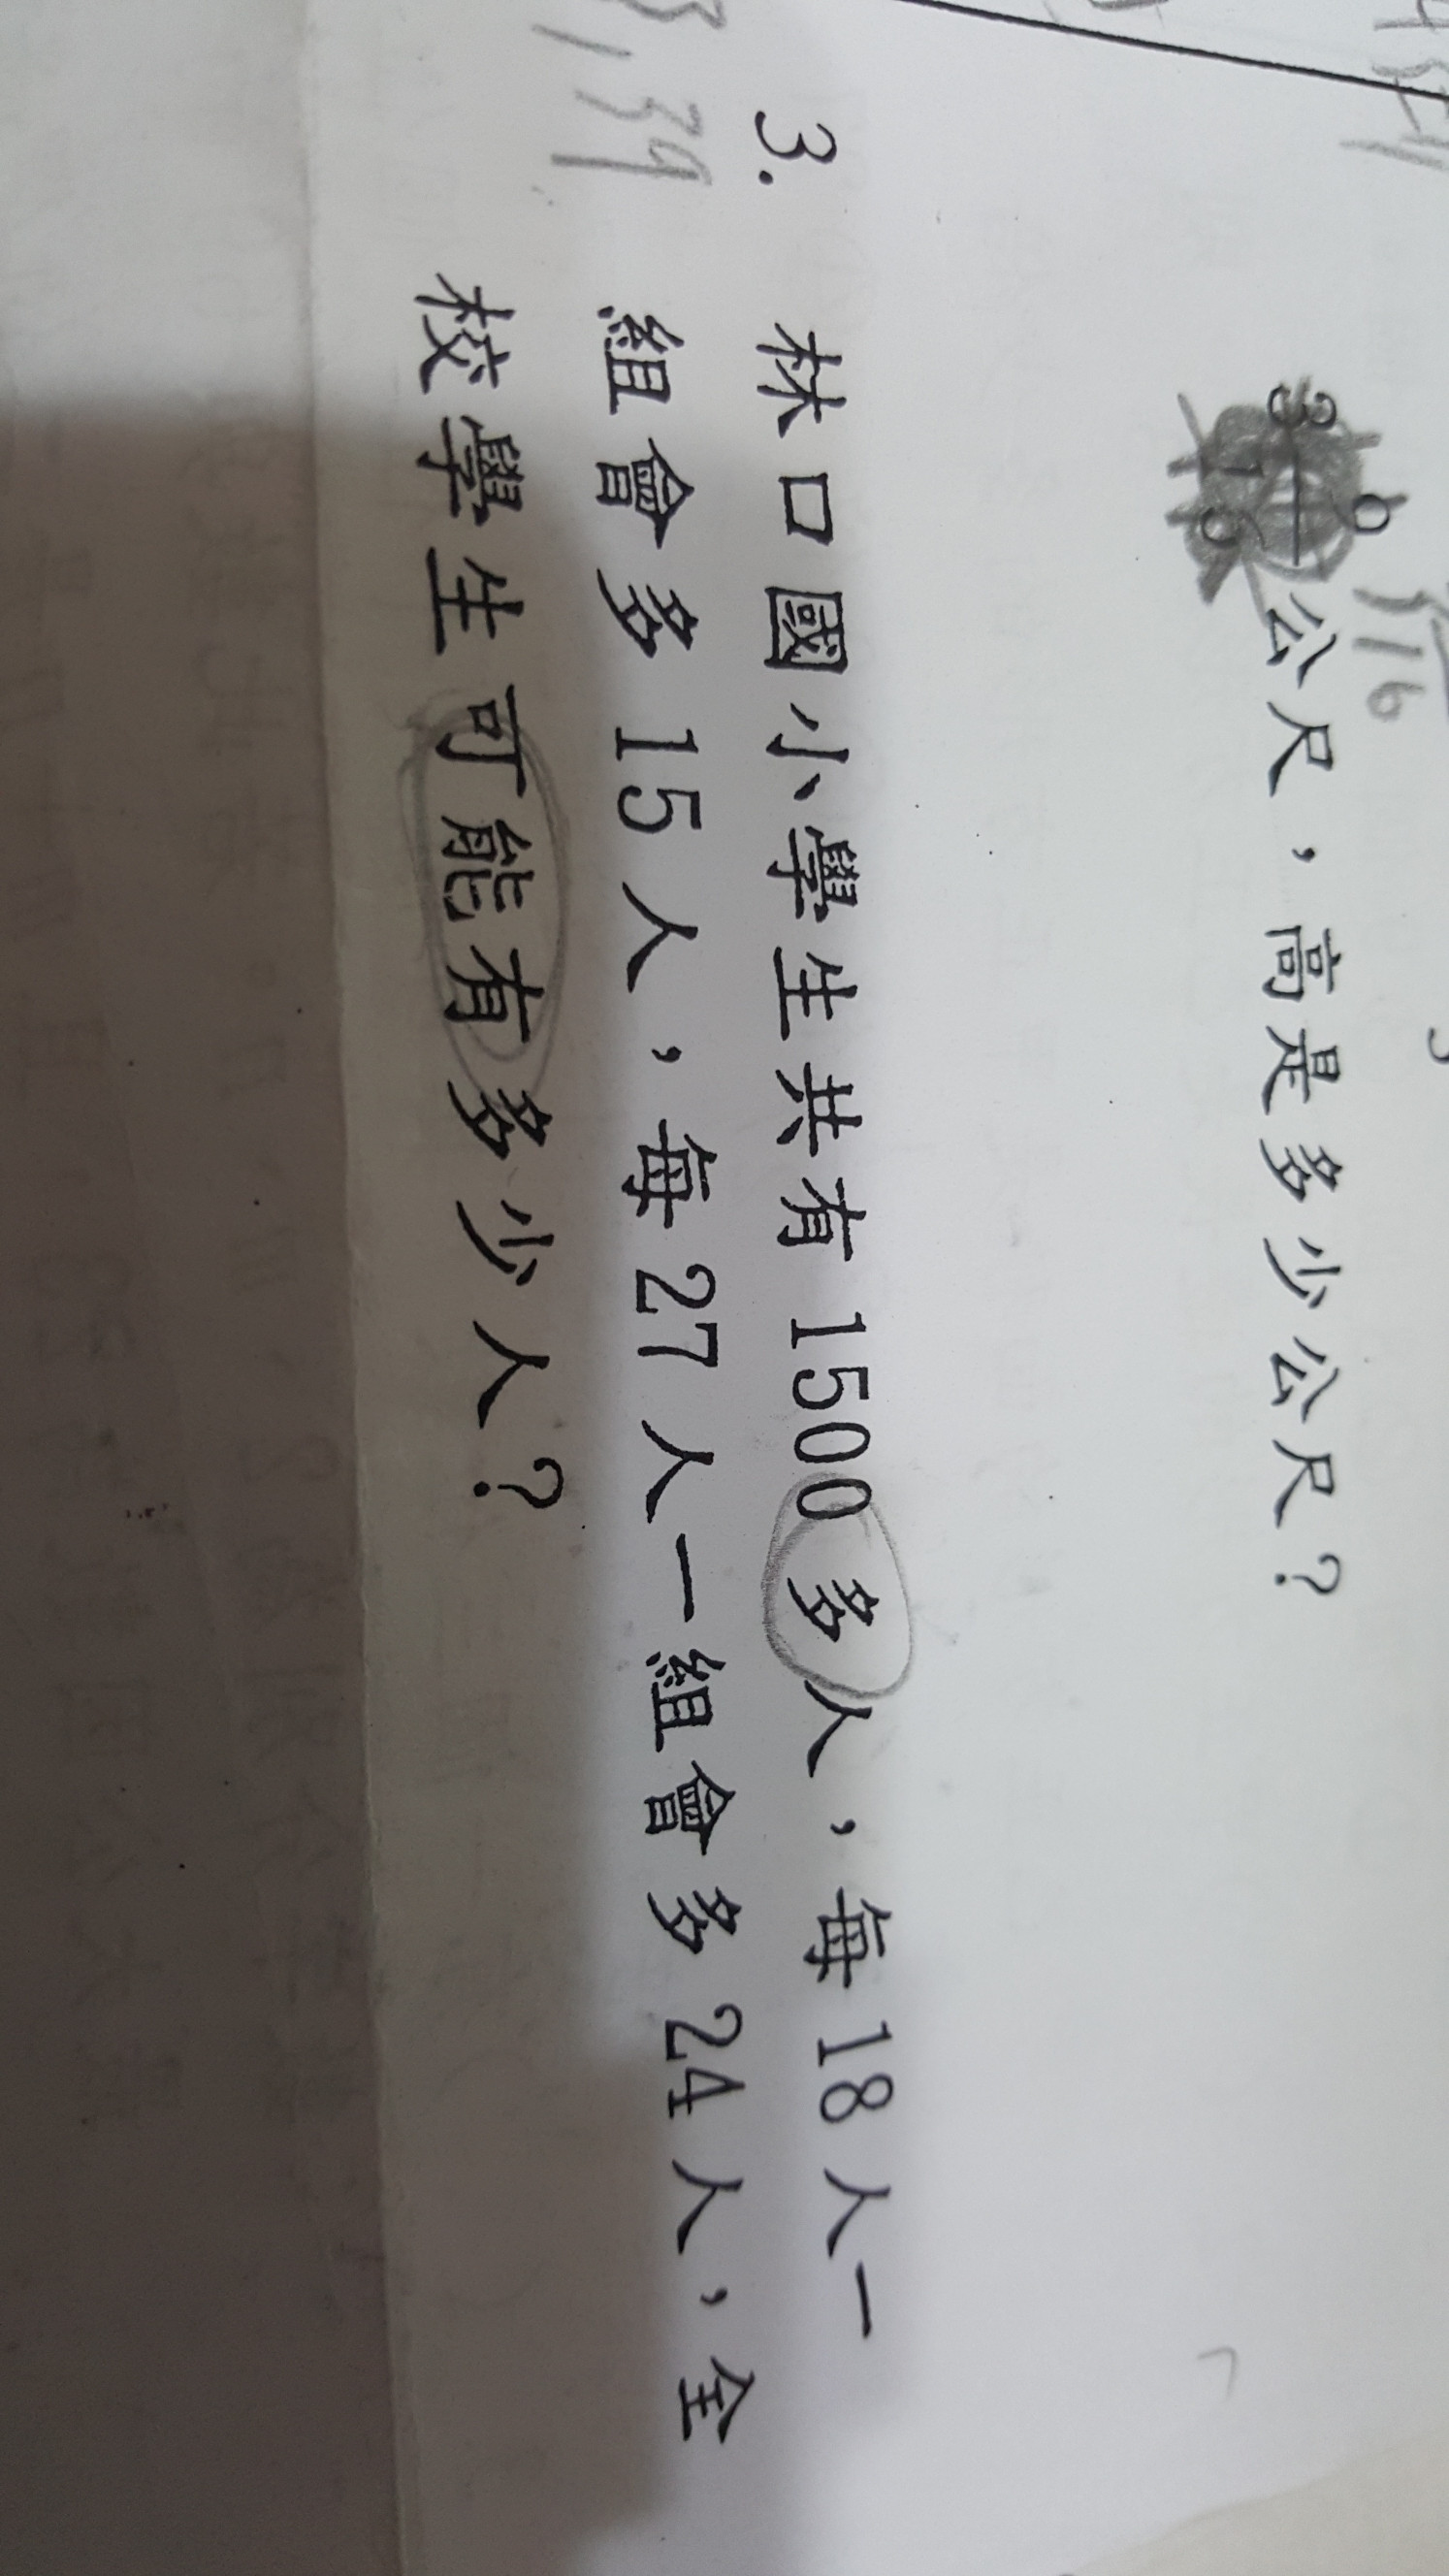 公尺，高是多少公尺？
3. 林口國小學生共有1500多人，每18人一
組會多15人，每27人一組會多24人，全
校學生可能有多少人？